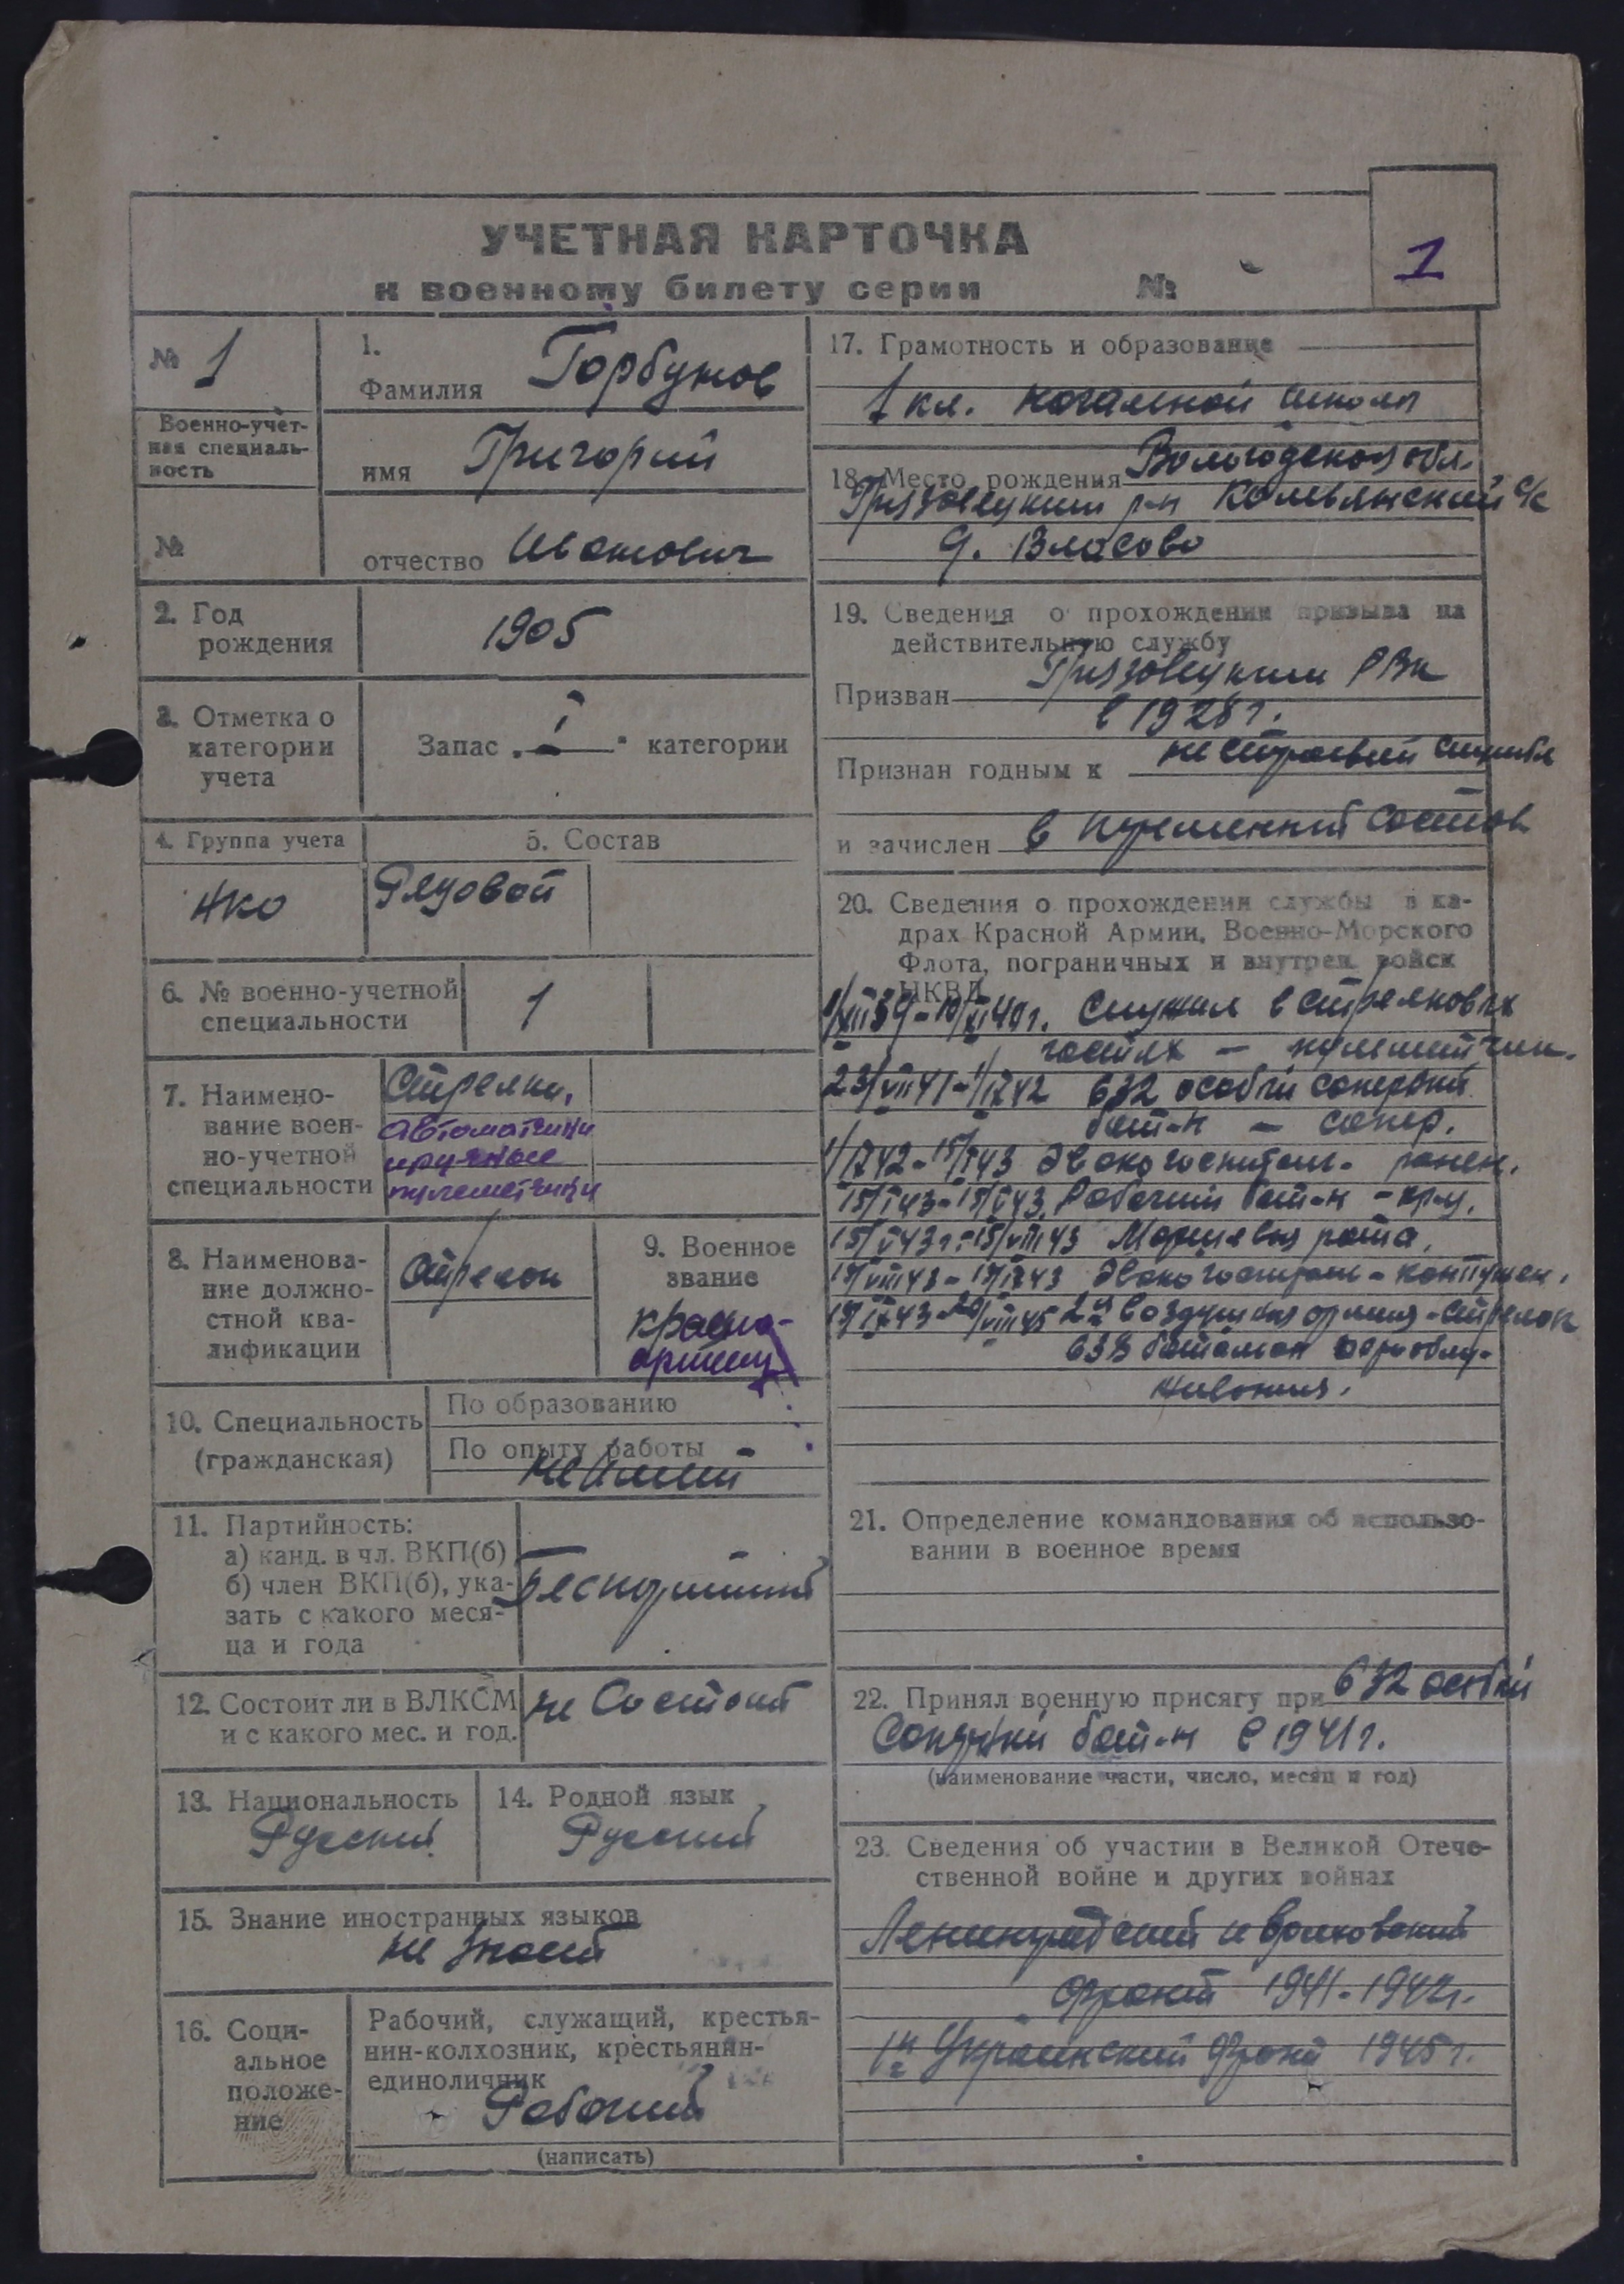 УЧЕТНАЯ КАРТОЧКА
к военному билету серии №
1
№ 1
Военно-учет-
ная специаль-
ность
№
1.
Фамилия Горбунов
имя Григорий
отчество Иванович
2. Год
рождения
1905
3. Отметка о
категории
учета
Запас „I“ категории
4. Группа учета
НКО
5. Состав
Рядовой
6. № военно-учетной
специальности
1
7. Наимено-
вание воен-
но-учетной
специальности
Стрелки,
автоматчики
ручные
пулеметчики
8. Наименова-
ние должно-
стной ква-
лификации
Стрелок
9. Военное
звание
красно-
армеец
10. Специальность
(гражданская)
По образованию
По опыту работы -
не имеет
11. Партийность:
а) канд. в чл. ВКП(б)
б) член ВКП(б), ука-
зать с какого меся-
ца и года
Беспартийный
12. Состоит ли в ВЛКСМ
и с какого мес. и год.
не состоит
13. Национальность
Русский
14. Родной язык
Русский
15. Знание иностранных языков
не знает
16. Соци-
альное
положе-
ние
Рабочий, служащий, крестья-
нин-колхозник, крестьянин-
единоличник
Рабочий
(написать)
17. Грамотность и образование
1 кл. начальной школы
18. Место рождения Вологодская обл.
Грязовецкий р-н с/с
д. Власово
19. Сведения о прохождении призыва на
действительную службу
Призван Грязовецким РВК
в 1928 г.
Признан годным к нестроевой службе
и зачислен в состав
20. Сведения о прохождении службы в ка-
драх Красной Армии, Военно-Морского
Флота, пограничных и внутрен. войск
НКВД
1/XII 39 - 10/XI 40 г. Служил в стрелковых
частях — пулеметчик.
23/VIII 41 - 1/IX 42 632 особый саперный
бат-н — сапер.
1/IX 42 - 15/I 43 Эвакогоспиталь - ранен.
15/I 43 - 15/V 43 Рабочий бат-н - кр-ц.
15/V 43 г. - 15/VIII 43 Маршевая рота.
15/VIII 43 - 15/IX 43 Эвакогоспиталь - контужен.
15/IX 43 - 20/VIII 45 2я воздушная армия - стрелок
638 батальон аэрообслу-
живания.
21. Определение командования об использо-
вании в военное время
22. Принял военную присягу при 632 особый
саперный бат-н в 1941 г.
(наименование части, число, месяц и год)
23. Сведения об участии в Великой Отече-
ственной войне и других войнах
Ленинградский и Волховский
фронт 1941-1942 г.
1й Украинский фронт 1945 г.